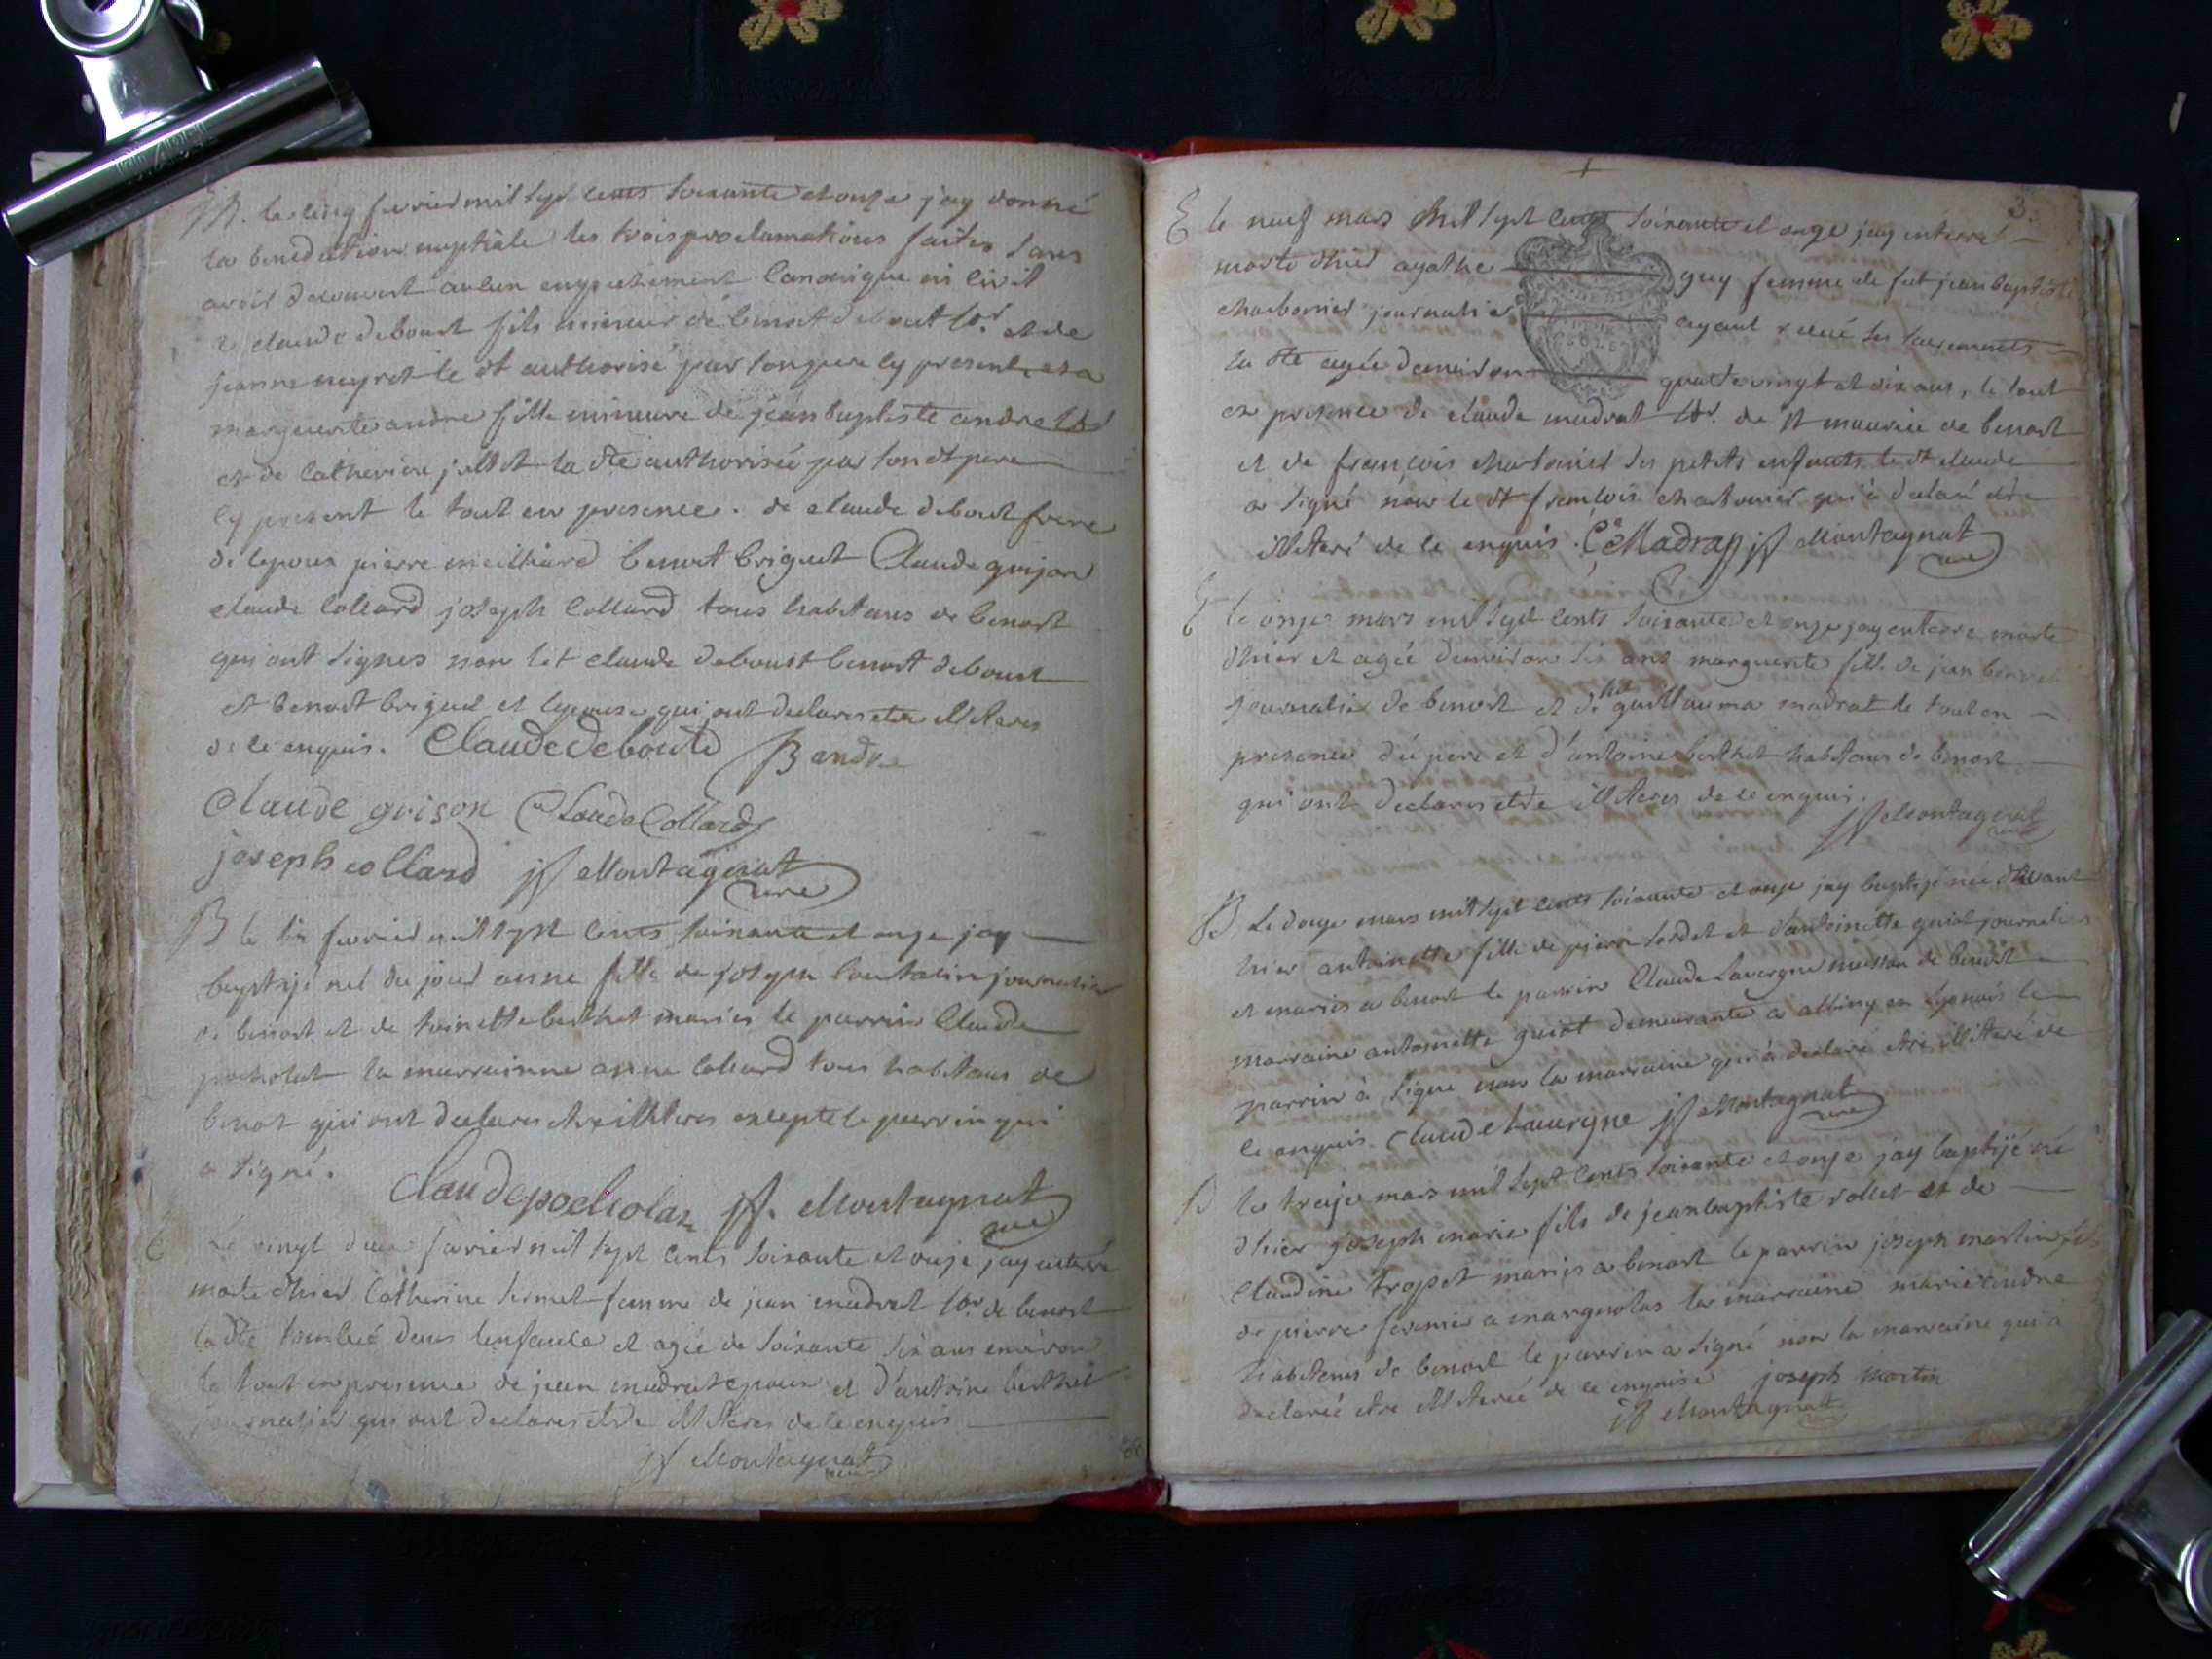 M. le cinq fevrier mil sept cents soixante et onze j'ay donné
la benediction nuptiale les trois proclamations faites sans
avoir decouvert aucun empechement canonique ni civil
a claude deboust fils mineur de benoit deboust et de
jeanne neyret le dt authorisé par son pere cy present et a
marguerite andre fille mineure de jean baptiste andre
et de Catherine jullet la dte authorisée par son dt pere
cy present le tout en presence de claude deboust frere
de lepoux pierre meilliard benoit briguet Claude guijon
claude Collard joseph Collard tous habitans de benost
qui ont signes non le dt claude deboust benoit deboust
et benoit briguet et lepouse qui ont declares etre illiteres
de ce enquis. Claude deboute JB andre
Claude grison Claude Collard
joseph collard jf Montagnat
curé
B le six fevrier mil sept cents soixante et onze jay
baptisé née du jour anne fille de joseph journalier
de benost et de toinette berthet mariés le parrin Claude
pocholat la marrainne anne Collard tous habitans de
benost qui ont declares etre illiteres excepté le parrin qui
a signé.
Claude pocholat jf. Montagnat
curé
E Le vingt deux fevrier mil sept cents soixante et onze jay enterré
morte d'hier Catherine femme de jean madrat de benost
la dte tombée dans lenfance et agée de soixante six ans environ
le tout en presence de jean madrat epoux et d'antoine berthet
journalier qui ont declares etre illiteres de ce enquis
jf Montagnat
curé
3.
E le neuf mars mil sept cents soixante et onze jay enterré
morte d'hier agathe guy femme de fut jean baptiste
charbonier journalier ayant reçué ses sacrements
la dte agée d'environ quatre vingt et dix ans, le tout
en presence de claude madrat de st maurice de benost
et de francois charbonier ses petits enfants le dt claude
a signé non le dt francois charbonier qui a declaré etre
illiteré de ce enquis. Ce Madrat jf Montagnat
curé
E le onze mars mil sept cents soixante et onze jay enterré morte
d'hier et agée d'environ six ans marguerite fille de jean
journalier de benost et de guillauma madrat le tout en
presence du pere et d'antoine berthet habitans de benost
qui ont declares etre illiteres de ce enquis.
jf Montagnat
curé
B Le douze mars mil sept cents soixante et onze jay baptisé née d'avant
hier antoinette fille de pierre et d'antoinette guiot journaliers
et mariés a benost le parrin Claude Lavergne masson de benost
marraine antoinette guiot demeurante a albiny en Lyonois le
parrin à signé non la marraine qui à declaré etre illiteré de
ce enquis. Claude Lauvrgne jf Montagnat
curé
B le treize mars mil sept cents soixante et onze jay baptisé né
d'hier joseph marie fils de jean baptiste rollet et de
Claudine tropet mariés a benost le parrin joseph martin fils
de pierre fermier a margnolas la marraine marie andre
habitans de benost le parrin a signé non la marraine qui a
declarée etre illiterée de ce enquise joseph martin
jf Montagnat